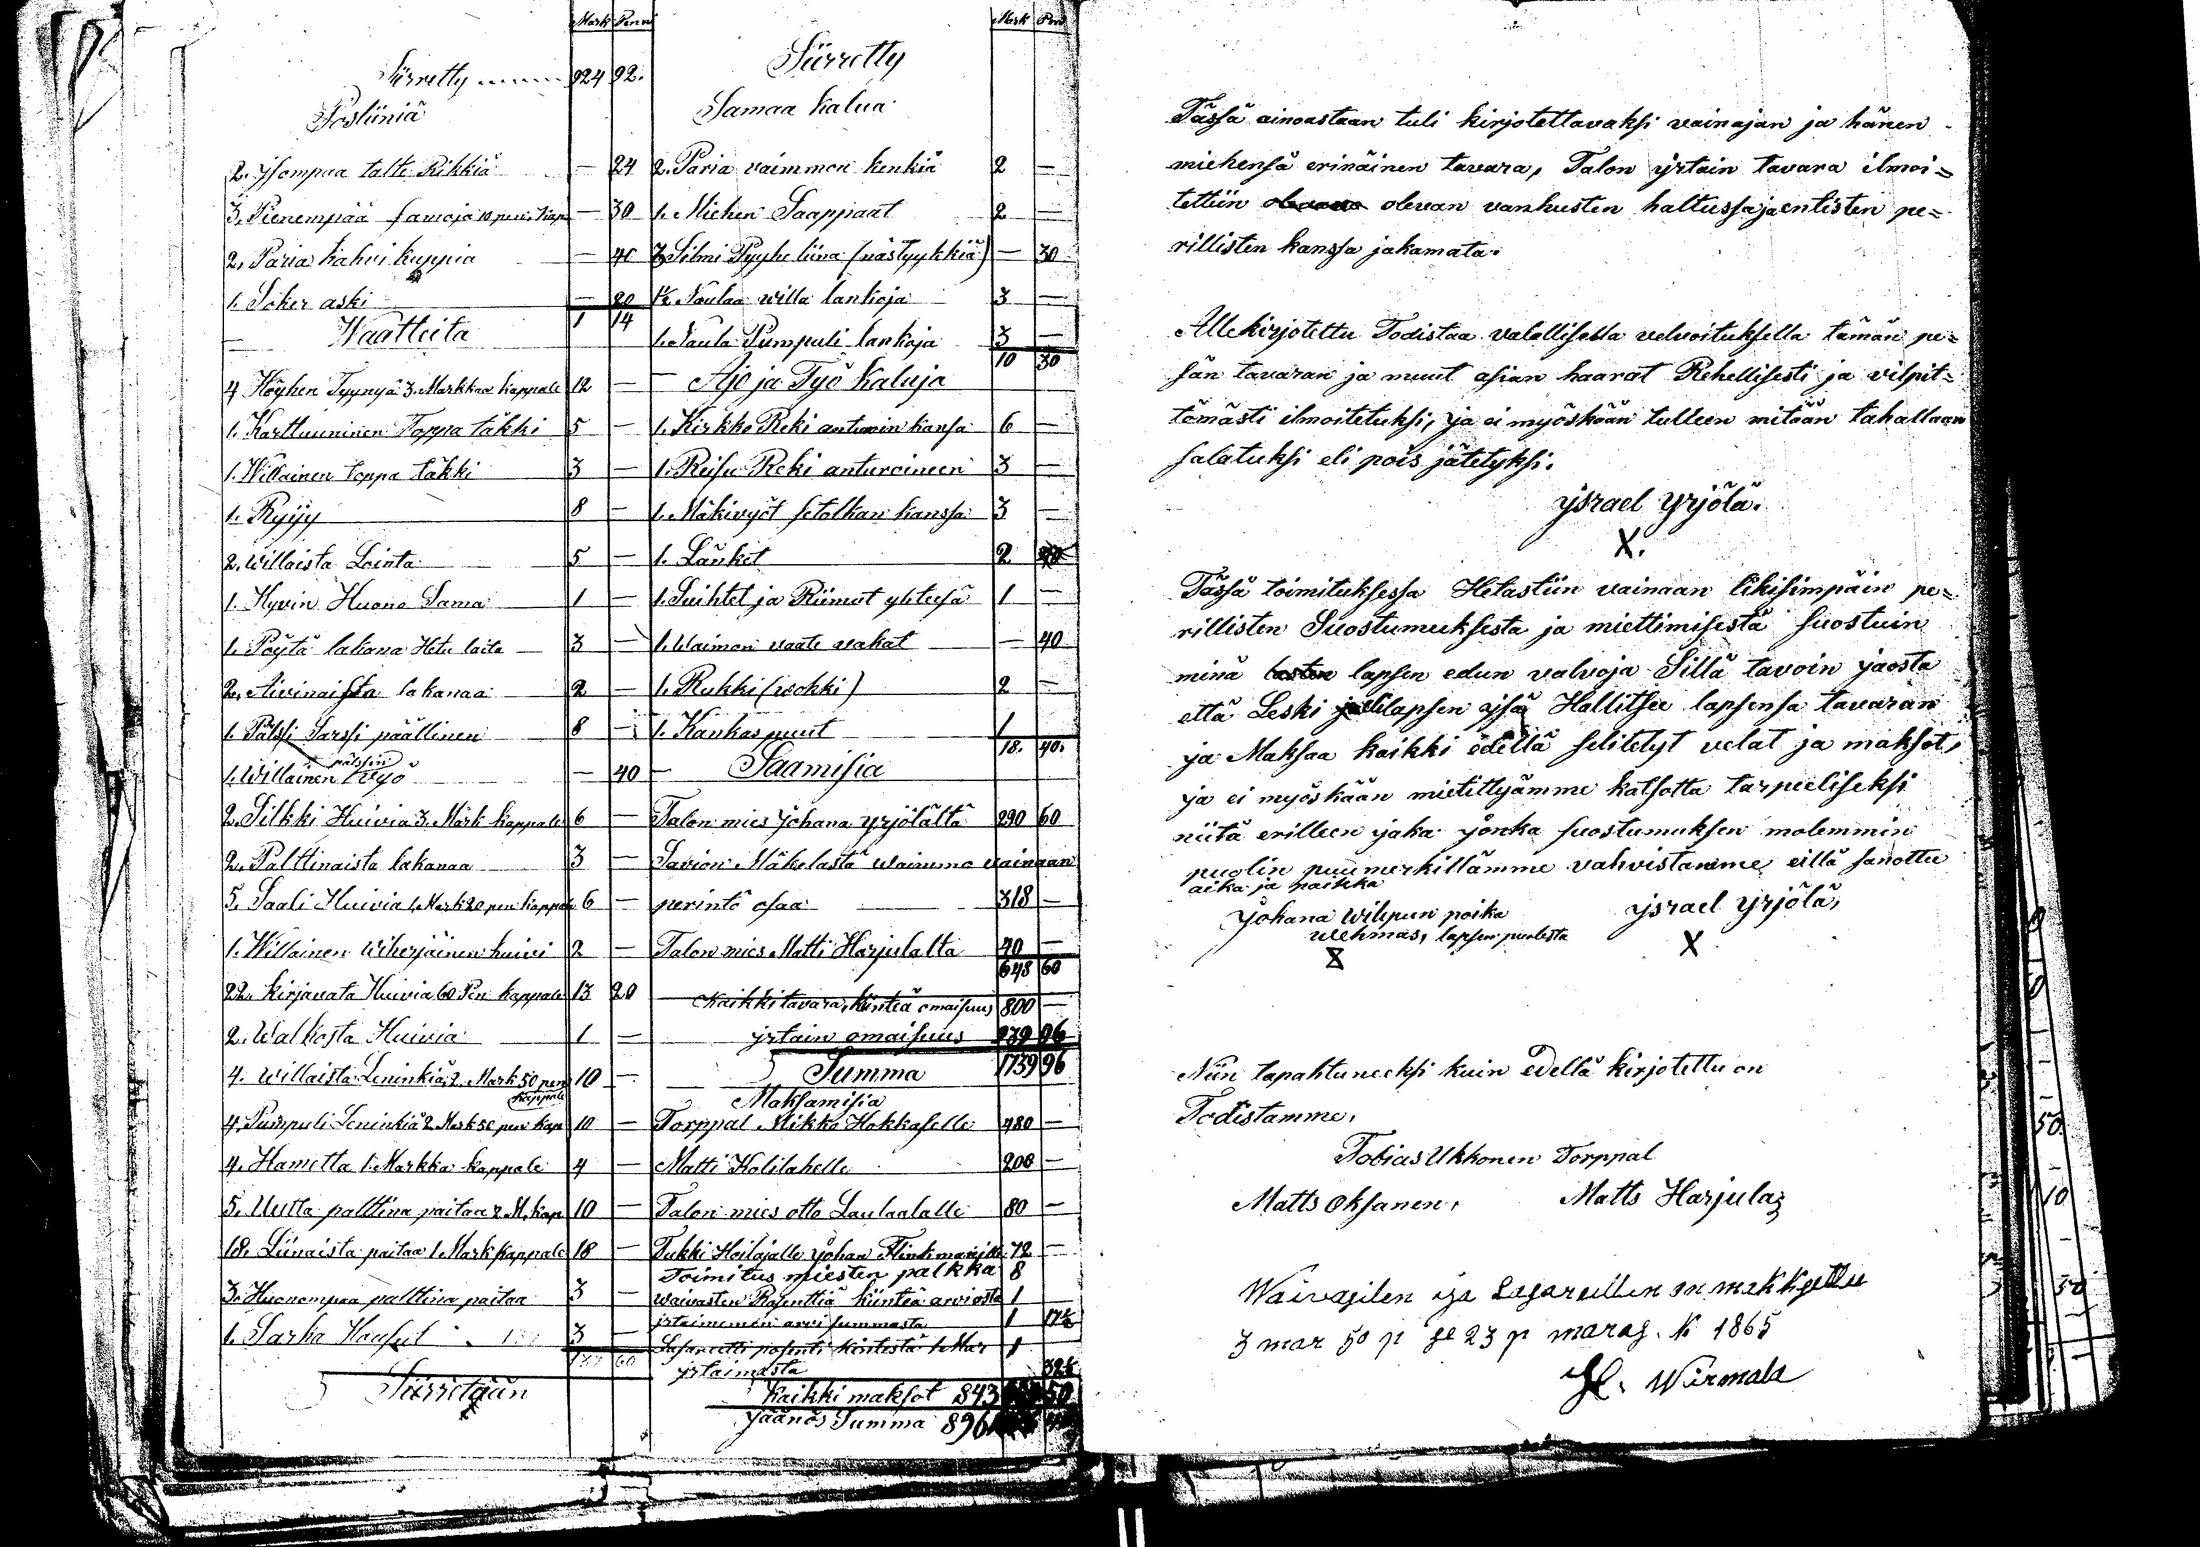 Mark Penni
Siirretty 924 92.
Posliiniä
2. Ysompaa talte. Rikkiä — 24
3. Pienempää samoja 10 peni. kap — 30
2. Paria kahvi kuppia — 40
1. Soker aski — 20
1 14
Waatteita
4 Höyhen Tyynyä 3. Markkaa kappale 12 —
1. Karttuuninen Toppa täkki 5 —
1. Willainen toppa täkki 3 —
1. Ryijy 8 —
2. Willaista Lointa 5 —
1. Hyvin Huono Sama 1 —
1. Pöytä lakana Hetu laita 3 —
2. Aivinaista lakanaa 2 —
1. Pälssi Sarssi päällinen 8 —
1. Willainen pälssin Vyö — 40
2. Silkki Huivia 3. Mark kappale 6 —
2. Palttinaista lakanaa 3 —
5. Saali Huivia 1. Mark 20 pen kappale 6 —
1. Willainen wiherjäinen huivi 2 —
22. kirjavata Huivia 60 Pen kappale 13 20
2. Walkosta Huivia 1 —
4. Willaista Leninkiä 2. Mark 50 pen kappale 10 —
4. Pumpuli Leninkiä 2 Mark 50 pen kap 10 —
4. Hametta 1. Markka kappale 4 —
5. Uutta palttina paitaa 2 M. kap 10 —
18. Liinaista paitaa 1. Mark kappale 18 —
3. Huonompaa palttina paitaa 3 —
1. Sarka Housut 3 —
Siirretään
Mark Pen
Siirretty
Samaa kalua
2. Paria vaimmon kenkiä 2 —
1. Miehen Saappaat 2 —
3 Silmi Pyyhe liina (nästyykkiä) — 30
1½ Naulaa willa lankoja 3 —
1. Naula Pumpuli lankoja 3 —
10 30
Ajo ja Työ kaluja
1. Kirkko Reki anturoin kansa 6 —
1. Reisu Reki anturoineen 3 —
1. Mäkivyöt setolkan kanssa 3 —
1. Länket 2
1. Suihtet ja Riimut yhteesä 1 —
1. Waimon vaate vakat — 40
1. Rukki (wokki) 2 —
1. Kankas puut 1
18. 40.
Saamisia
Talon mies Johana Yrjölältä 290 60
Savion Mäkelastä wainmo vainaan
perintö osaa 318 —
Talon mies Matti Harjulalta 40 —
648 60
Kaikki tavara, kiinteä omaisuus 800 —
yrtain omaisuus 939 96
Summa 1739 96
Maksamisia
Torppal Mikko Hokkaselle 480 —
Matti Kolilahelle 200 —
Talon mies otto Laulaalalle 80 —
Tukki Hoitajalle Johan Flinkmanille 72 —
Toimitus miesten palkka 8
waivasten Rosenttiä kiinteä arviosta 1
irtaimemen arvi summasta 1 17½
Lasareetti posenti kiintestä 1. Mar 1
yrtaimesta 32½
Kaikki maksot 843 50
Jäänös Summa 896
Tässä ainoastaan tuli kirjotettavaksi vainajan ja hänen
miehensä erinäinen tavara, Talon yrtain tavara ilmoi=
tettiin olevan vanhusten haltussa ja entisten pe=
rillisten kanssa jakamata.
Allekirjotettu Todistaa valallisella velvoituksella tämän pe=
sän tavaran ja muut asian haarat Rehellisesti ja vilpit=
tömästi ilmoitetuksi, ja ei myöskään tulleen mitään tahallaan
salatuksi eli pois jätetyksi.
ysrael yrjölä.
X.
Tässä toimituksessa Hetastiin vainaan likisimpäin pe=
rillisten Suostumuksesta ja miettimisestä suostuin
minä lapsen edun valvoja Sillä tavoin jaosta
että Leski lapsen isä Hallitsee lapsensa tavaran
ja Maksaa kaikki edellä selitetyt velat ja maksot,
ja ei myöskään mietittyämme katsotta tarpeeliseksi
niitä erilleen jaka jonka suostumuksen molemmin
puolin puumerkillämme vahvistamme eillä sanottu
aika ja paikka
Johana Wilpun poika ysrael yrjölä,
wehmas, lapsen puolesta
X X
Niin tapahtuneeksi kuin edellä kirjotettu on
Todistamme,
Tobias Ukkonen Torppal
Matts Oksanen, Matts Harjula
Waivasilen ija Lasareillen on makksettu
3 mar 50 p se 23 p maras. k 1865
H. Wirmala
50
10
50